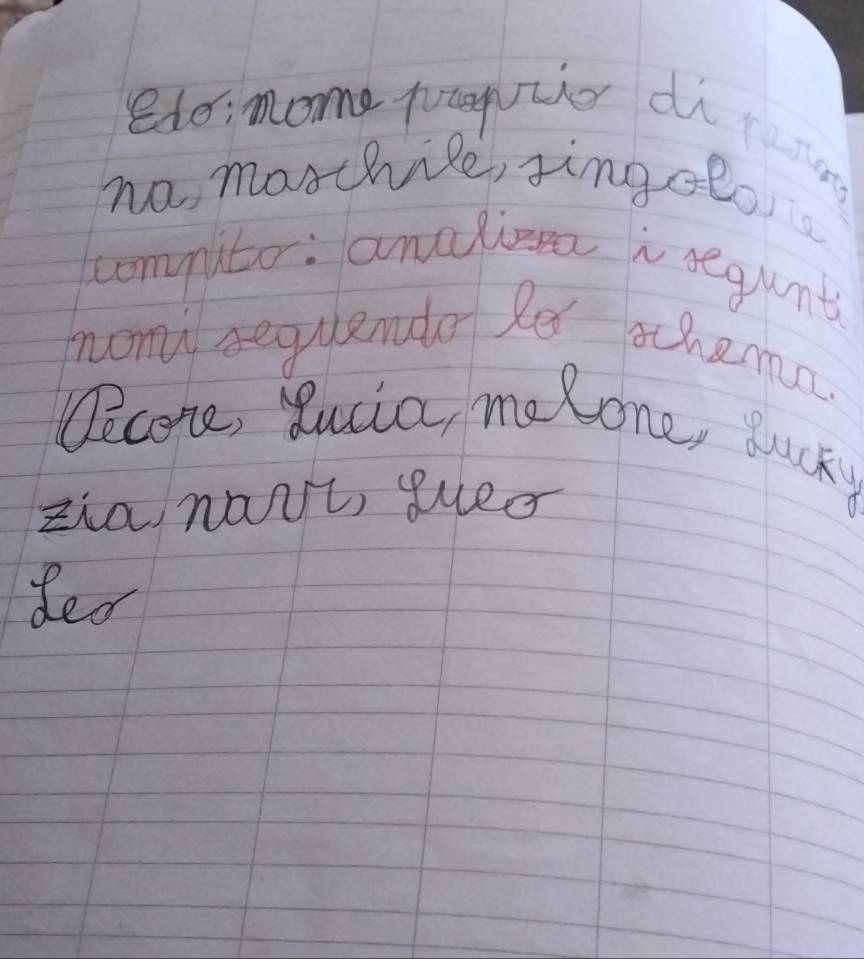 Edo: nome proprio di perso
na, maschile, singolare
compito: analizza i segunti
nomi seguendo lo schema.
Pecore, Lucia, melone, Lucky,
zia, navi,
Leo